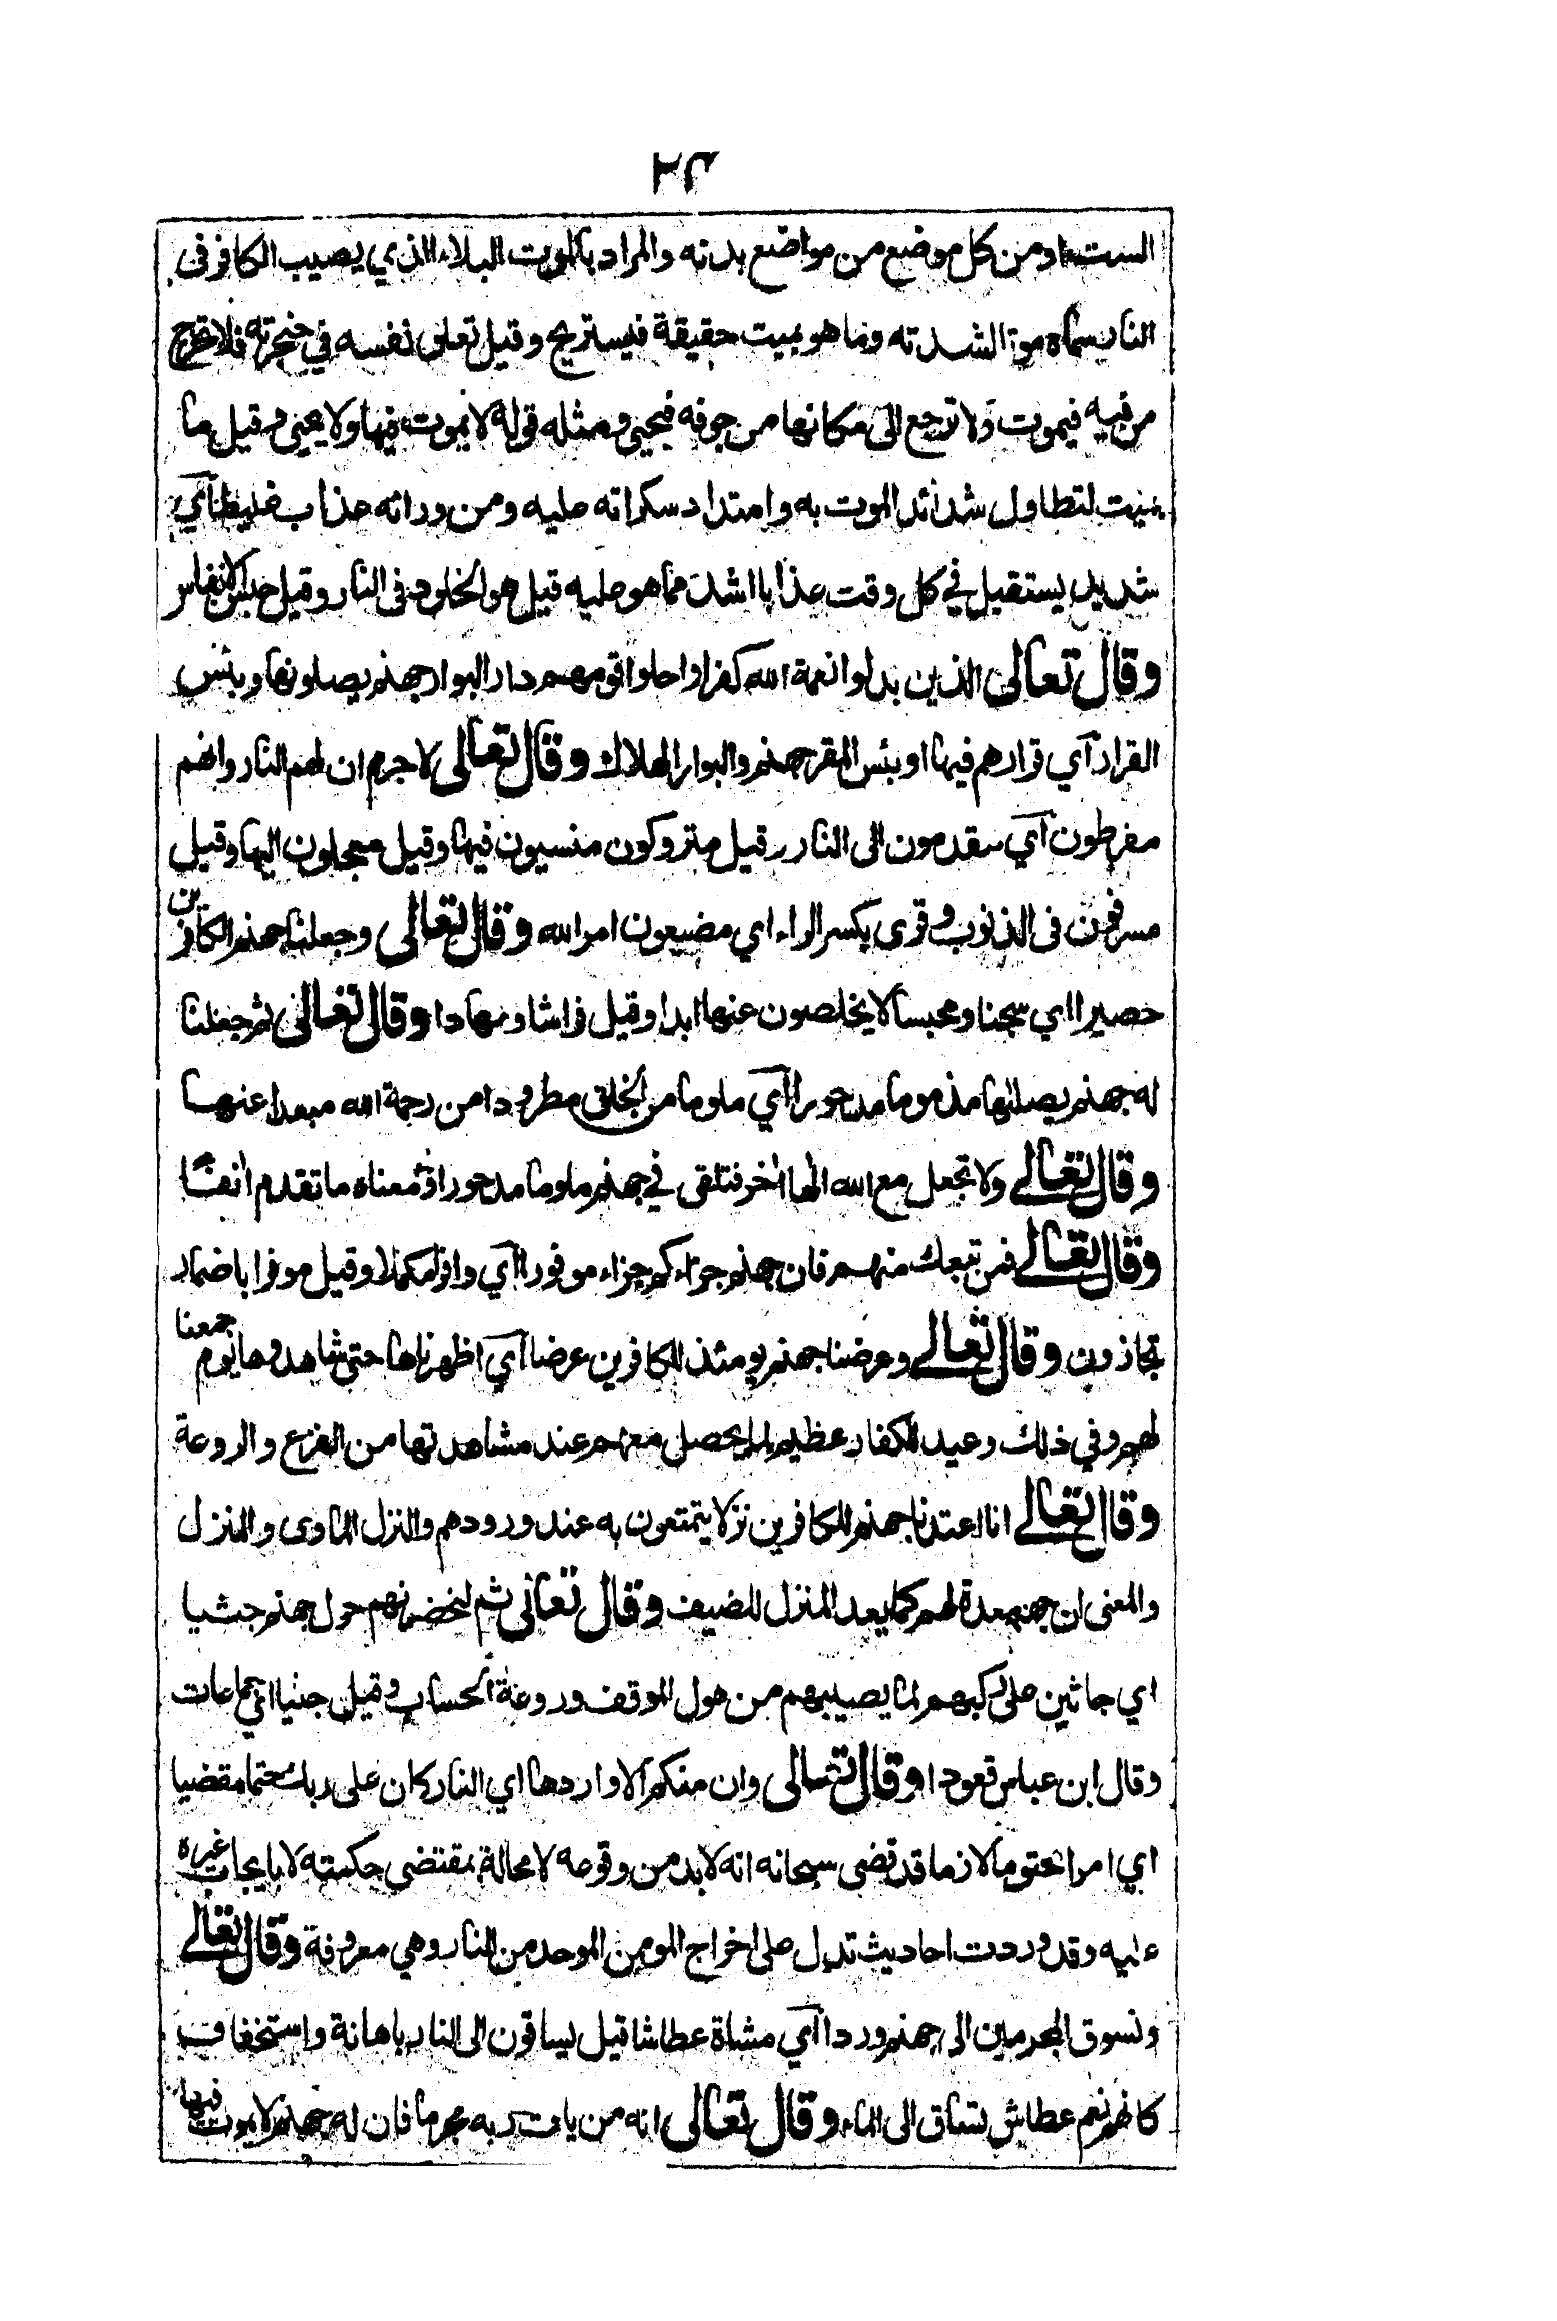 ٢٣
الست او من كل موضع من مواضع بدنه والمراد بالموت البلاء الذي يصيب الكافر في
النار سماه موتا لشدته وما هو بميت حقيقة فيستريح وقيل تعلق نفسه في حنجرته فلا تخرج
من فيه فيموت ولا ترجع الى مكانها من جوفه فيحيى ومثله قوله لا يموت فيها ولا يحيى وقيل ما
بميت لتطاول شدائد الموت به وامتداد سكراته عليه ومن ورائه عذاب غليظ اي
شديد يستقبل في كل وقت عذابا اشد مما هو عليه قيل هو الخلود في النار وقيل حبس الانفاس
وقال تعالى الذين بدلوا نعمة الله كفرا واحلوا قومهم دار البوار جهنم يصلونها وبئس
القرار اي قرارهم فيها او بئس المقر جهنم والبوار الهلاك وقال تعالى لا جرم ان لهم النار وانهم
مفرطون اي مقدمون الى النار وقيل متروكون منسيون فيها وقيل معجلون اليها وقيل
مسرفون في الذنوب وقرى بكسر الراء اي مضيعون امر الله وقال تعالى وجعلنا جهنم للكافرين
حصيرا اي سجنا ومحبسا لا يخلصون عنها ابدا وقيل فراشا ومهادا وقال تعالى ثم جعلنا
له جهنم يصلاها مذموما مدحورا اي ملوما من الخلق مطرودا من رحمة الله مبعدا عنها
وقال تعالى ولا تجعل مع الله الها اخر فتلقى في جهنم ملوما مدحورا ومعناه ما تقدم انفا
وقال تعالى فمن تبعك منهم فان جهنم جزاءكم جزاء موفورا اي وافرا مكملا وقيل موفرا باضمار
تجازون وقال تعالى وعرضنا جهنم يومئذ للكافرين عرضا اي اظهرناها حتى شاهدوها يوم جمعنا
لهم وفي ذلك وعيد للكفار عظيم لما يحصل معهم عند مشاهدتها من الفزع والروعة
وقال تعالى انا اعتدنا جهنم للكافرين نزلا يتمتعون به عند ورودهم والنزل الماوى والمنزل
والمعنى ان جهنم معدة لهم كما يعد المنزل للضيف وقال تعالى ثم لنحضرنهم حول جهنم جثيا
اي جاثين على ركبهم لما يصيبهم من هول الموقف وروعة الحساب وقيل جثيا اي جماعات
وقال ابن عباس قعودا وقال تعالى وان منكم الا واردها اي النار كان على ربك حتما مقضيا
اي امرا محتوما لازما قد قضى سبحانه انه لا بد من وقوعه لا محالة بمقتضى حكمته لا بايجاب غيره
عليه وقد وردت احاديث تدل على اخراج المومن الموحد من النار وهي معروفة وقال تعالى
ونسوق المجرمين الى جهنم وردا اي مشاة عطاشا قيل يساقون الى النار باهانة واستخفاف
كانهم نعم عطاش تساق الى الماء وقال تعالى انه من يات ربه مجرما فان له جهنم لا يموت فيها